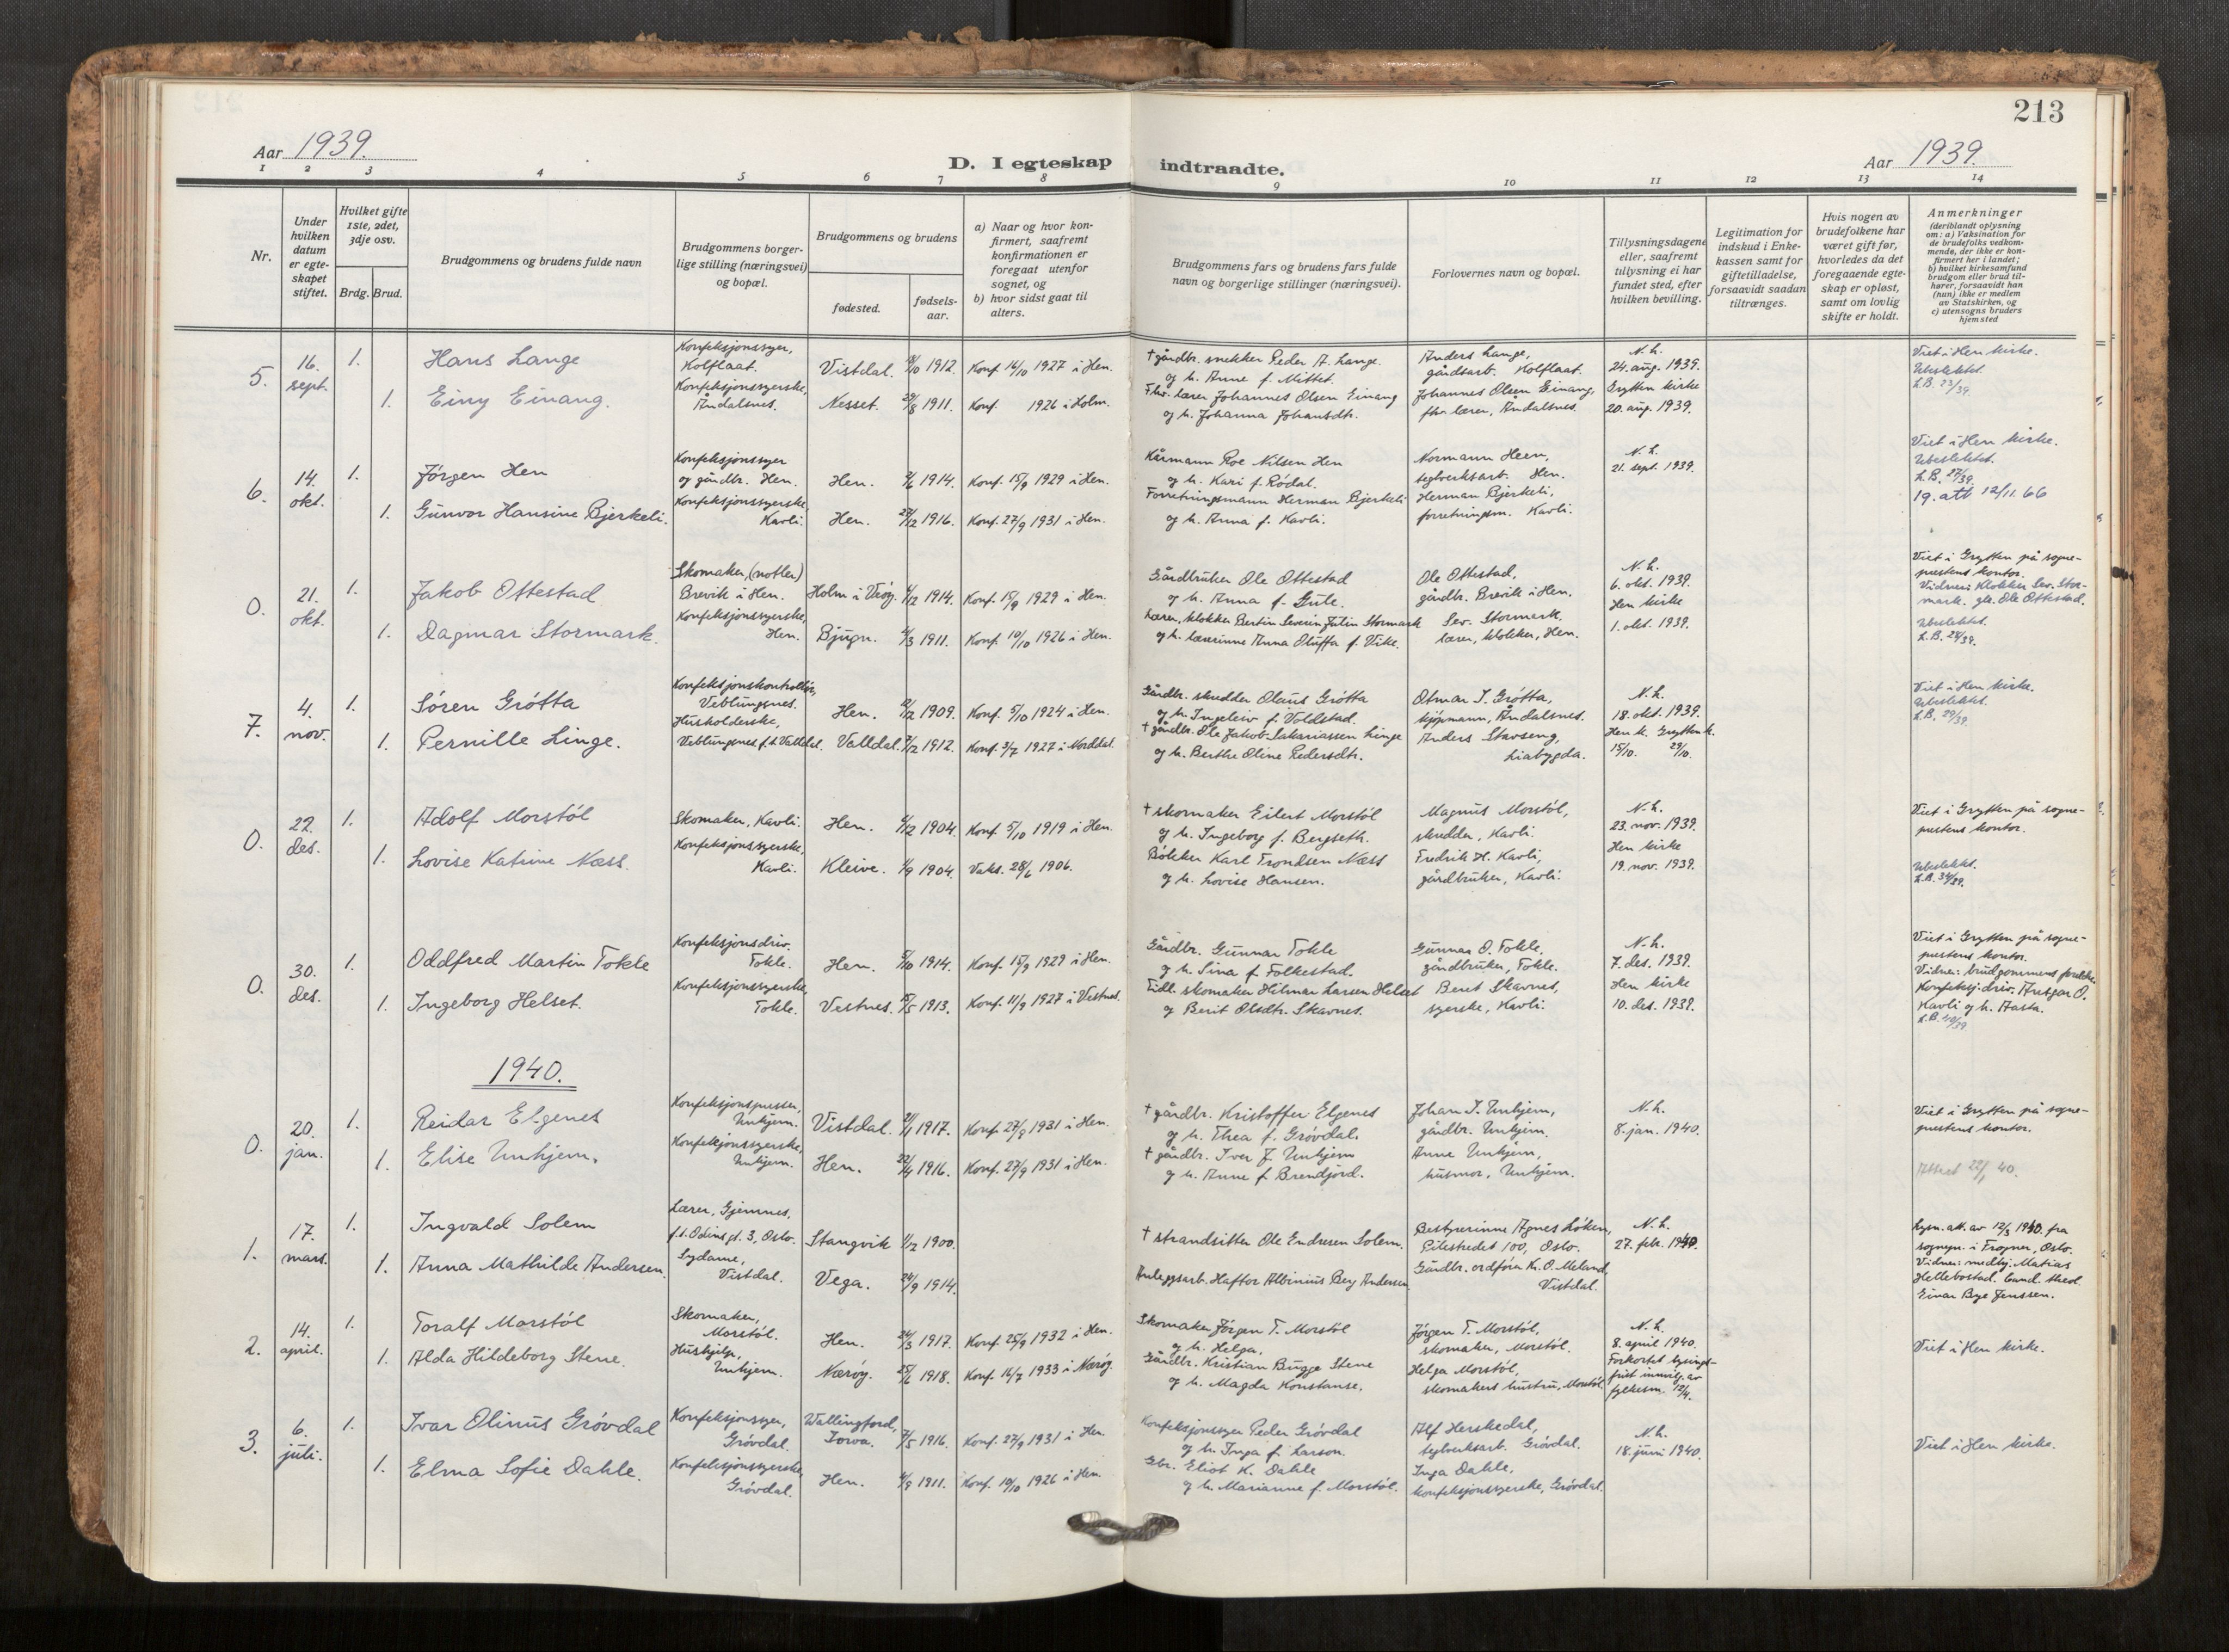 213
Aar 1939.
D. I egteskap indtraadte.
Aar 1939.
1 2 3 4 5 6 7 8 9 10 11 12 13 14
Nr.
Under hvilken datum er egteskapet stiftet.
Hvilket gifte 1ste, 2det, 3dje osv.
Brdg. Brud.
Brudgommens og brudens fulde navn
Brudgommens borgerlige stilling (næringsvei) og bopæl.
Brudgommens og brudens
fødested.
fødselsaar.
a) Naar og hvor konfirmert, saafremt konfirmationen er foregaat utenfor sognet, og
b) hvor sidst gaat til alters.
Brudgommens fars og brudens fars fulde navn og borgerlige stillinger (næringsvei).
Forlovernes navn og bopæl.
Tillysningsdagene eller, saafremt tillysning ei har fundet sted, efter hvilken bevilling.
Legitimation for indskud i Enkekassen samt for giftetilladelse, forsaavidt saadan tiltrænges.
Hvis nogen av brudefolkene har været gift før, hvorledes da det foregaaende egteskap er opløst, samt om lovlig skifte er holdt.
Anmerkninger (deriblandt oplysning om: a) Vaksination for de brudefolks vedkommende, der ikke er konfirmert her i landet; b) hvilket kirkesamfund brudgom eller brud tilhører, forsaavidt han (hun) ikke er medlem av Statskirken, og c) utensogns bruders hjemsted
5. 16. sept. 1. Hans Lange
Konfeksjonssyer, Kolflaat.
Vistdal. 1912. Konf. 16/10 1927 i Hen.
† gårdbr. snekker Peder A. Lange.
og h. Anne f. Mittet.
Anders Lange,
gårdsarb. Kolflaat.
N. h.
24. aug. 1939.
Viet i Hen kirke.
Ubeslektet.
L.B. 23/39.
1. Einy Einang.
Konfeksjonssyerske, Åndalsnes.
Nesset. 29/8 1911. Konf. 1926 i Holm.
Fhv. lærer Johannes Olsen Einang
og h. Johanna Johansdtr.
Johannes Olsen Einang,
fhv. lærer, Åndalsnes.
Grytten kirke
20. aug. 1939.
6. 14. okt. 1. Jörgen Hen
Konfeksjonssyer og gårdbr. Hen.
Hen. 1914. Konf. 15/9 1929 i Hen.
Kårmann Roe Nilsen Hen
og h. Kari f. Rödal.
Normann Heen,
teglverksarb. Hen.
N. h.
21. sept. 1939.
Viet i Hen kirke.
Ubeslektet.
L.B. 27/39.
19. att 12/11. 66
1. Gunvor Hansine Bjerkeli.
Konfeksjonssyerske, Kavli.
Hen. 27/12 1916. Konf. 27/9 1931 i Hen.
Forretningsmann Herman Bjerkeli
og h. Anna f. Kavli.
Herman Bjerkeli,
forretningsm. Kavli.
0. 21. okt. 1. Jakob Ottestad
Skomaker, (notler) Brevik i Hen.
Holm i Veöy. 1914. Konf. 15/9 1929 i Hen.
Gårdbruker Ole Ottestad
og h. Anna f. Gule.
Ole Ottestad,
gårdbr. Brevik i Hen.
N. h.
6. okt. 1939.
Viet i Grytten på sogneprestens kontor.
Vidner: Klokker Sev. Stormark. gbr. Ole Ottestad.
Ubeslektet.
L.B. 28/39.
1. Dagmar Stormark.
Konfeksjonssyerske, Hen.
Bjugn. 1911. Konf. 10/10 1926 i Hen.
Lærer, klokker Bertin Severin Julin Stormark
og h. lærerinne Anna Oluffa f. Vike.
Sev. Stormark,
lærer, klokker, Hen.
Hen kirke
1. okt. 1939.
7. 4. nov. 1. Sören Grötta
Konfeksjonskontrollör, Veblungsnes.
Hen. 1909. Konf. 5/10 1924 i Hen.
Gårdbr. skredder Olaus Grötta
og h. Ingeleiv f. Voldstad.
Otmar I. Grötta,
kjöpmann, Åndalsnes.
N. h.
18. okt. 1939.
Viet i Hen kirke.
Ubeslektet.
L.B. 29/39.
1. Pernille Linge.
Husholderske, Veblungsnes f.t. Valldal.
Valldal. 1912. Konf. 3/7 1927 i Norddal.
† gårdbr. Ole Jakob Sakariassen Linge
og h. Berthe Oline Pedersdtr.
Anders Stavseng,
Liabygda.
Hen k. Grytten k.
15/10. 29/10.
0. 22. des. 1. Adolf Morstöl
Skomaker, Kavli.
Hen. 1904. Konf. 5/10 1919 i Hen.
† skomaker Eilert Morstöl
og h. Ingeborg f. Bergseth.
Magnus Morstöl,
skredder, Kavli.
N. h.
23. nov. 1939.
Viet i Grytten på sogneprestens kontor.
1. Lovise Katrine Næss.
Konfeksjonssyerske, Kavli.
Kleive. 1904. Vaks. 28/6 1906.
Bökker Karl Trondsen Næss
og h. Lovise Hansen.
Fredrik H. Kavli,
gårdbruker, Kavli.
Hen kirke
19. nov. 1939.
Ubeslektet.
L.B. 34/39.
0. 30. des. 1. Oddfred Martin Tokle
Konfeksjonsdriv. Tokle.
Hen. 1914. Konf. 15/9 1929 i Hen.
Gårdbr. Gunnar Tokle
og h. Sina f. Folkestad.
Gunnar O. Tokle.
gårdbruker, Tokle.
N. h.
7. des. 1939.
Viet i Grytten på sogneprestens kontor.
Vidner: brudgommens foreldre.
Konfeksj.driv. Ansgar O. Kavli og h. Aasta.
1. Ingeborg Helset.
Konfeksjonssyerske, Tokle.
Vestnes. 1913. Konf. 11/9 1927 i Vestnes.
Tidl. skomaker Hilmar Larsen Helset
og Berit Olsdtr. Skavnes.
Beret Skavnes,
syerske, Kavli.
Hen kirke
10. des. 1939.
1940.
0. 20. jan. 1. Reidar Elgenes
Konfeksjonspresser, Unhjem.
Vistdal. 1917. Konf. 27/9 1931 i Hen.
† gårdbr. Kristoffer Elgenes
og h. Thea f. Grövdal.
Johan I. Unhjem,
gårdbr. Unhjem.
N. h.
8. jan. 1940.
Viet i Grytten på sogneprestens kontor.
1. Elise Unhjem.
Konfeksjonssyerske, Unhjem.
Hen. 22/4 1916. Konf. 27/9 1931 i Hen.
† gårdbr. Iver J. Unhjem
og h. Anne f. Brendjord.
Anne Unhjem,
husmor, Unhjem.
Attest 22/1 40.
1. 17. mars. 1. Ingvald Solem
Lærer, Gjemnes, f.t. Odinsgt. 3, Oslo.
Stangvik 1/12 1900.
† strandsitter Ole Endresen Solem.
Bestyrerinne Agnes Löken,
Pilestredet 100, Oslo.
N. h.
27. feb. 1940.
Lysn. att. av 12/3 1940 fra
sognepr. i Frogner, Oslo.
Vidner: medhj. Matias
Hellebostad. Cand. theol.
Einar Bye Jenssen.
1. Anna Mathilde Andersen.
Sydame, Vistdal.
Vega. 24/9 1914.
Anleggsarb. Haftor Albinius Berg Andersen
Gårdbr. ordförer K. O. Meland, Vistdal.
2. 14. april. 1. Toralf Morstöl
Skomaker, Morstöl.
Hen. 24/3 1917. Konf. 25/9 1932 i Hen.
Skomaker Jörgen T. Morstöl
og h. Helga.
Jörgen T. Morstöl,
skomaker, Morstöl.
N. h.
8. april 1940.
Viet i Hen kirke.
1. Alda Hildeborg Stene.
Hushjelp, Unhjem.
Næröy. 25/6 1918. Konf. 16/7 1933 i Næröy.
Gårdbr. Kristian Bugge Stene
og h. Magda Konstanse.
Helga Morstöl,
skomakers hustru, Morstöl.
Forkortet lysingsfrist innvilg. av fylkesm. 12/4.
3. 6. juli. 1. Ivar Olinus Grövdal
Konfeksjonssyer, Grövdal.
Wallingford, Iowa. 7/5 1916. Konf. 27/9 1931 i Hen.
Konfeksjonssyer Peder Grövdal
og h. Inga f. Larson.
Alf Herskedal,
teglverksarb. Grövdal.
N. h.
18. juni 1940.
Viet i Hen kirke.
1. Elma Sofie Dahle.
Konfeksjonssyerske, Grövdal.
Hen. 1911. Konf. 10/10 1926 i Hen.
Gbr. Eliot K. Dahle
og h. Marianne f. Morstöl.
Inga Dahle,
konfeksjonssyerske, Grövdal.